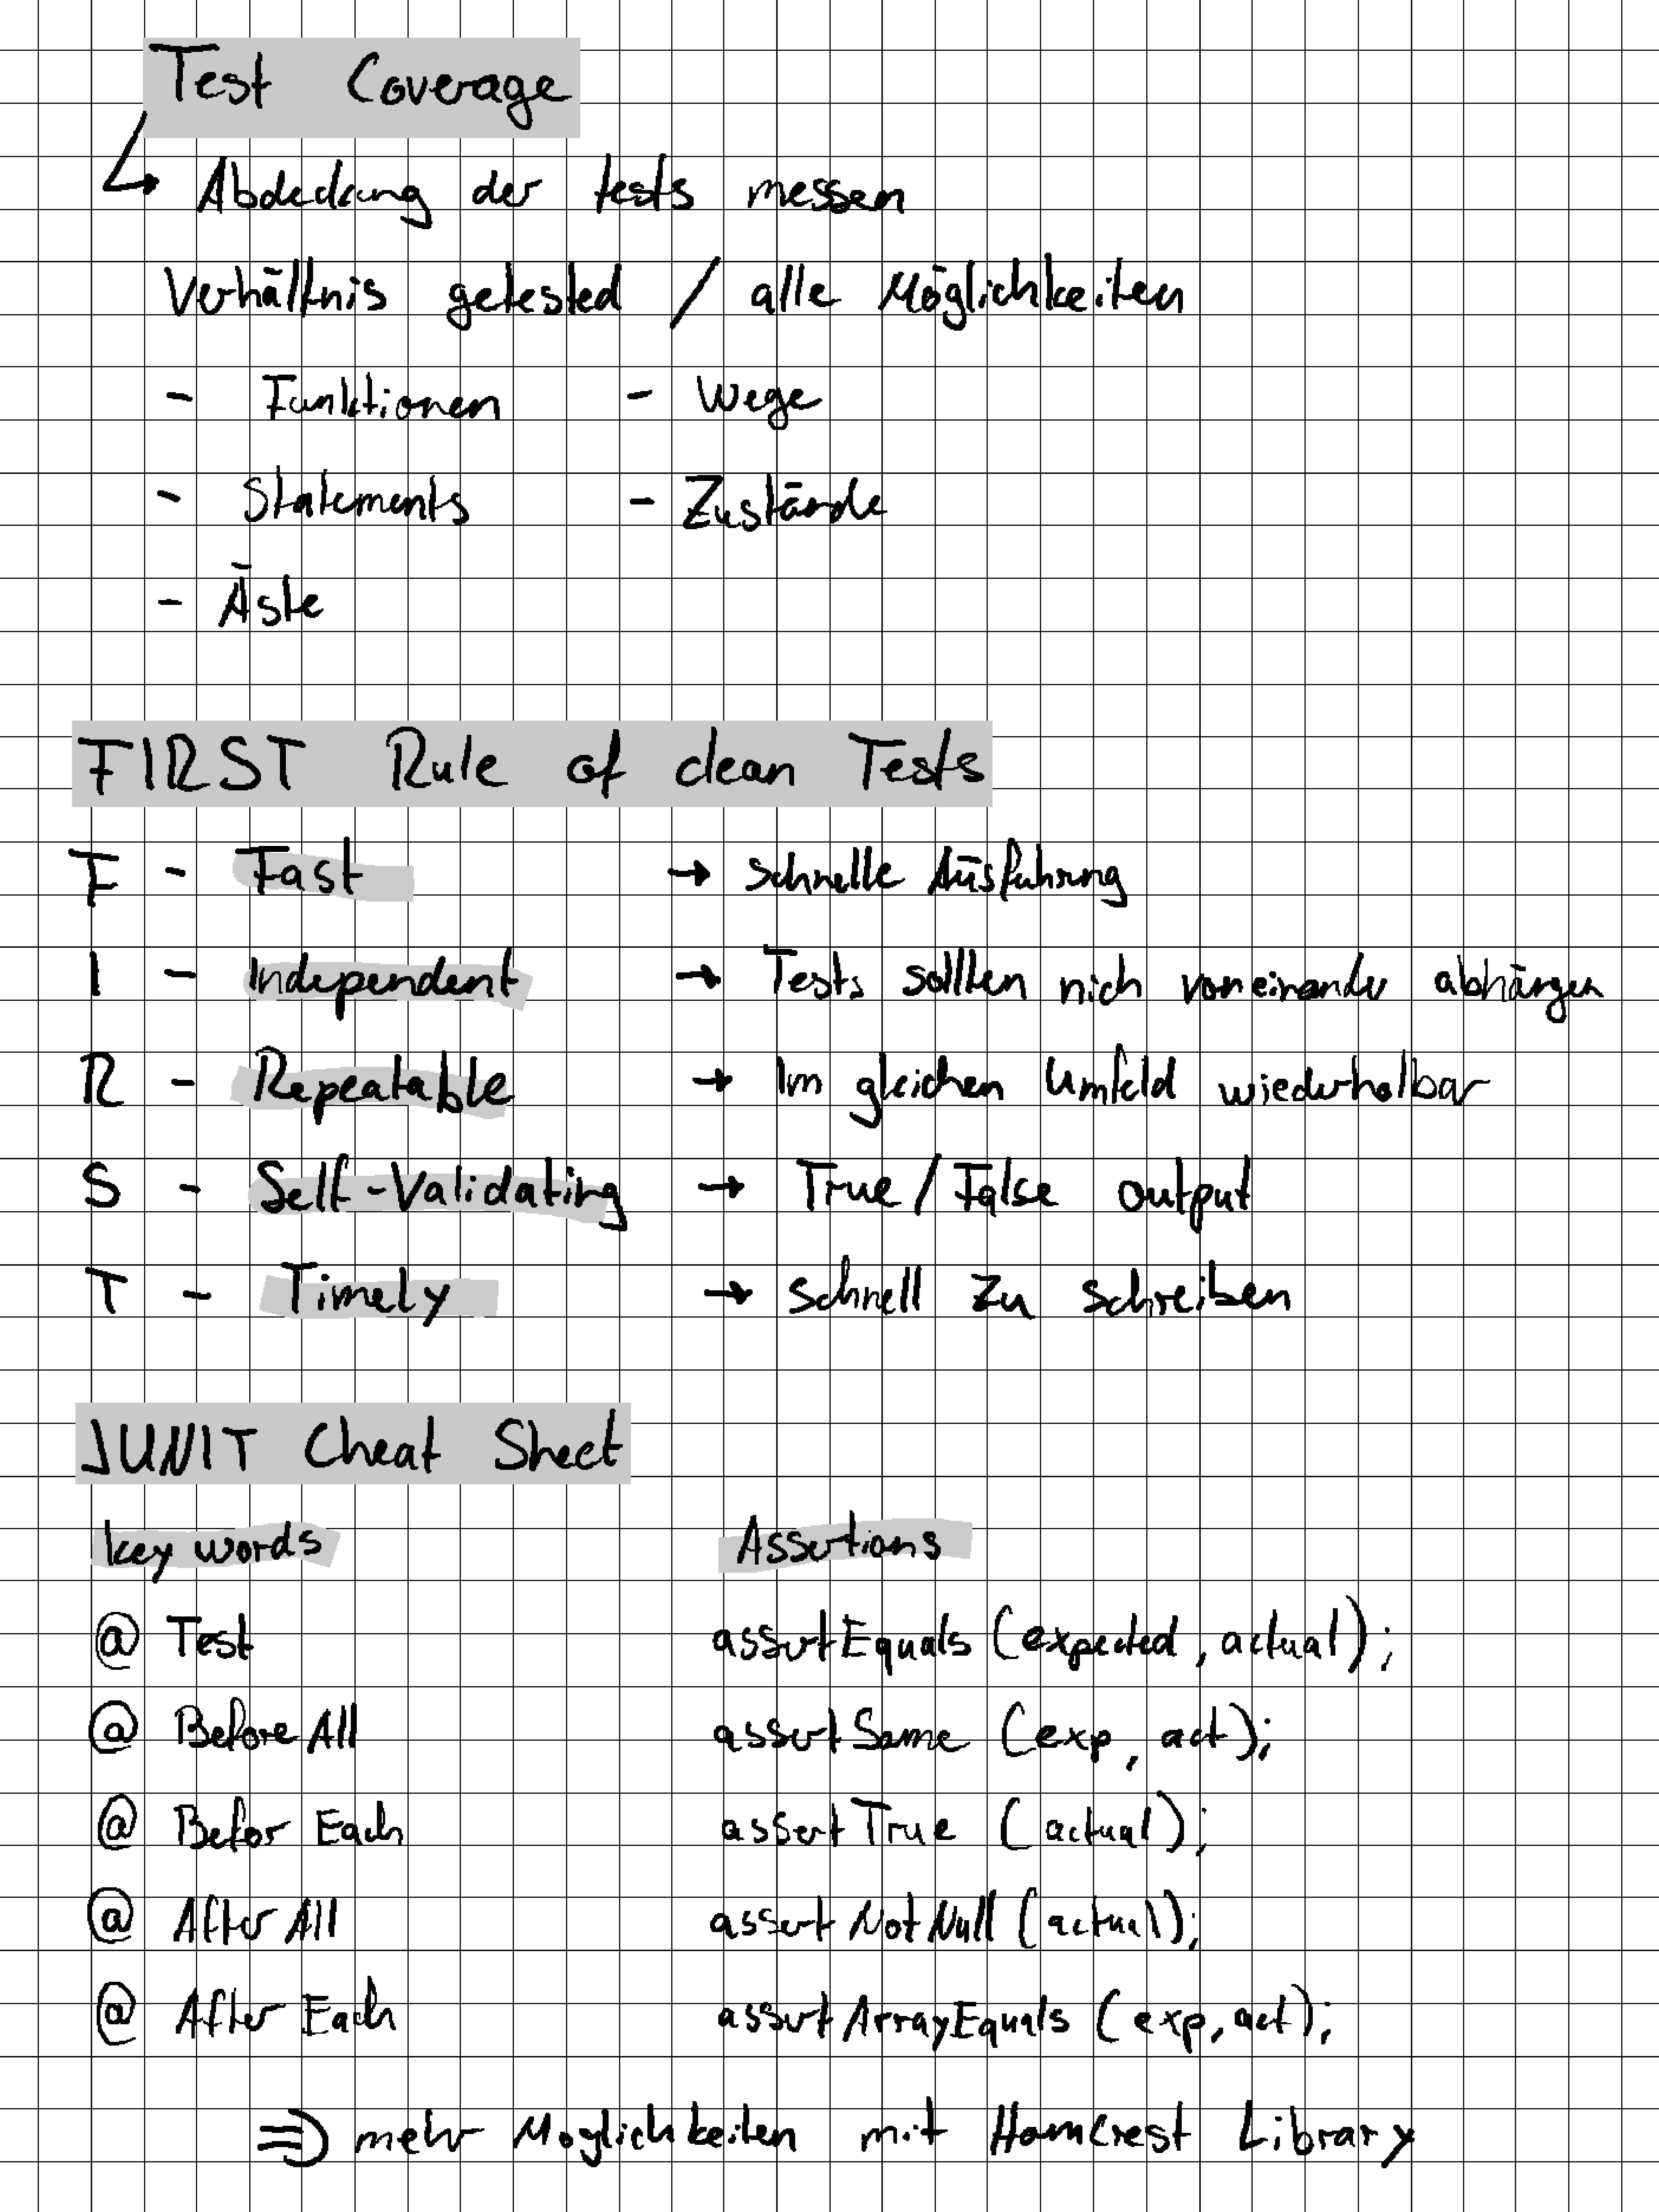 Test Coverage
↳ Abdeckung der tests messen
Verhältnis getested / alle Möglichkeiten
- Funktionen - Wege
- Statements - Zustände
- Äste
FIRST Rule of clean Tests
F - Fast → schnelle Ausführung
I - Independent → Tests sollten nich voneinander abhängen
R - Repeatable → Im gleichen Umfeld wiederholbar
S - Self-Validating → True / False output
T - Timely → schnell zu schreiben
JUNIT Cheat Sheet
key words Assertions
@ Test assertEquals (expected, actual);
@ Before All assert Same (exp, act);
@ Befor Each assert True (actual);
@ After All assert Not Null (actual);
@ After Each assert ArrayEquals (exp, act);
⇒ mehr Moglichkeiten mit Hamcrest Library